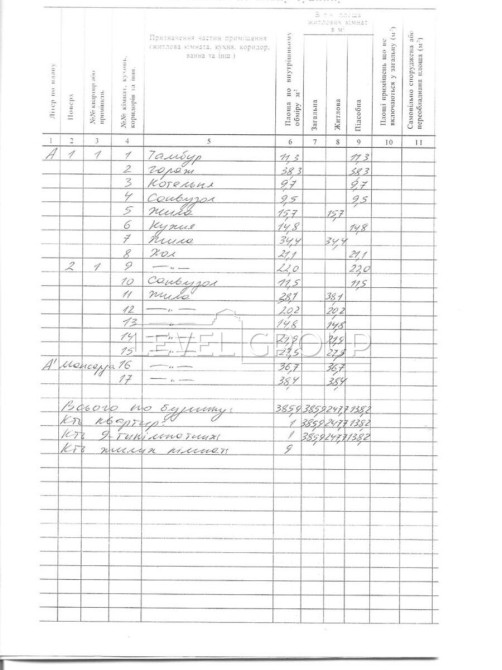 Літер по плану
Поверх
№№ квартир або приміщень
№№ кімнат, кухонь, коридорів та інш
Призначення частин приміщення
(житлова кімната, кухня, коридор,
ванна та інш.)
Площа по внутрішньому обміру м²
житлових кімнат
в м²
Загальна
Житлова
Підсобна
Площі приміщень що не включаються у загальну (м²)
Самовільно споруджена або переобладнана площа (м²)
1 2 3 4 5 6 7 8 9 10 11
А 1 1 1 Тамбур 11,3 11,3
2 гараж 38,3 38,3
3 Котельня 9,7 9,7
4 Санвузол 9,5 9,5
5 жила 15,7 15,7
6 Кухня 14,8 14,8
7 Жила 34,4 34,4
8 Хол 21,1 21,1
2 1 9 —"— 22,0 22,0
10 Санвузол 11,5 11,5
11 Жила 38,1
12 —"— 20,2 20,2
13 —"— 14,8 14,8
14 —"—
15 —"—
LEVEL GROUP
А' мансарда 16 —"— 36,7 36,7
17 —"— 38,4 38,4
Всього по будинку: 385,9 385,9 247,7 138,2
К-ть квартир 1 385,9 247,7 138,2
К-ть 9-ти кімнатних 1 385,9 247,7 138,2
К-ть жилих кімнат 9